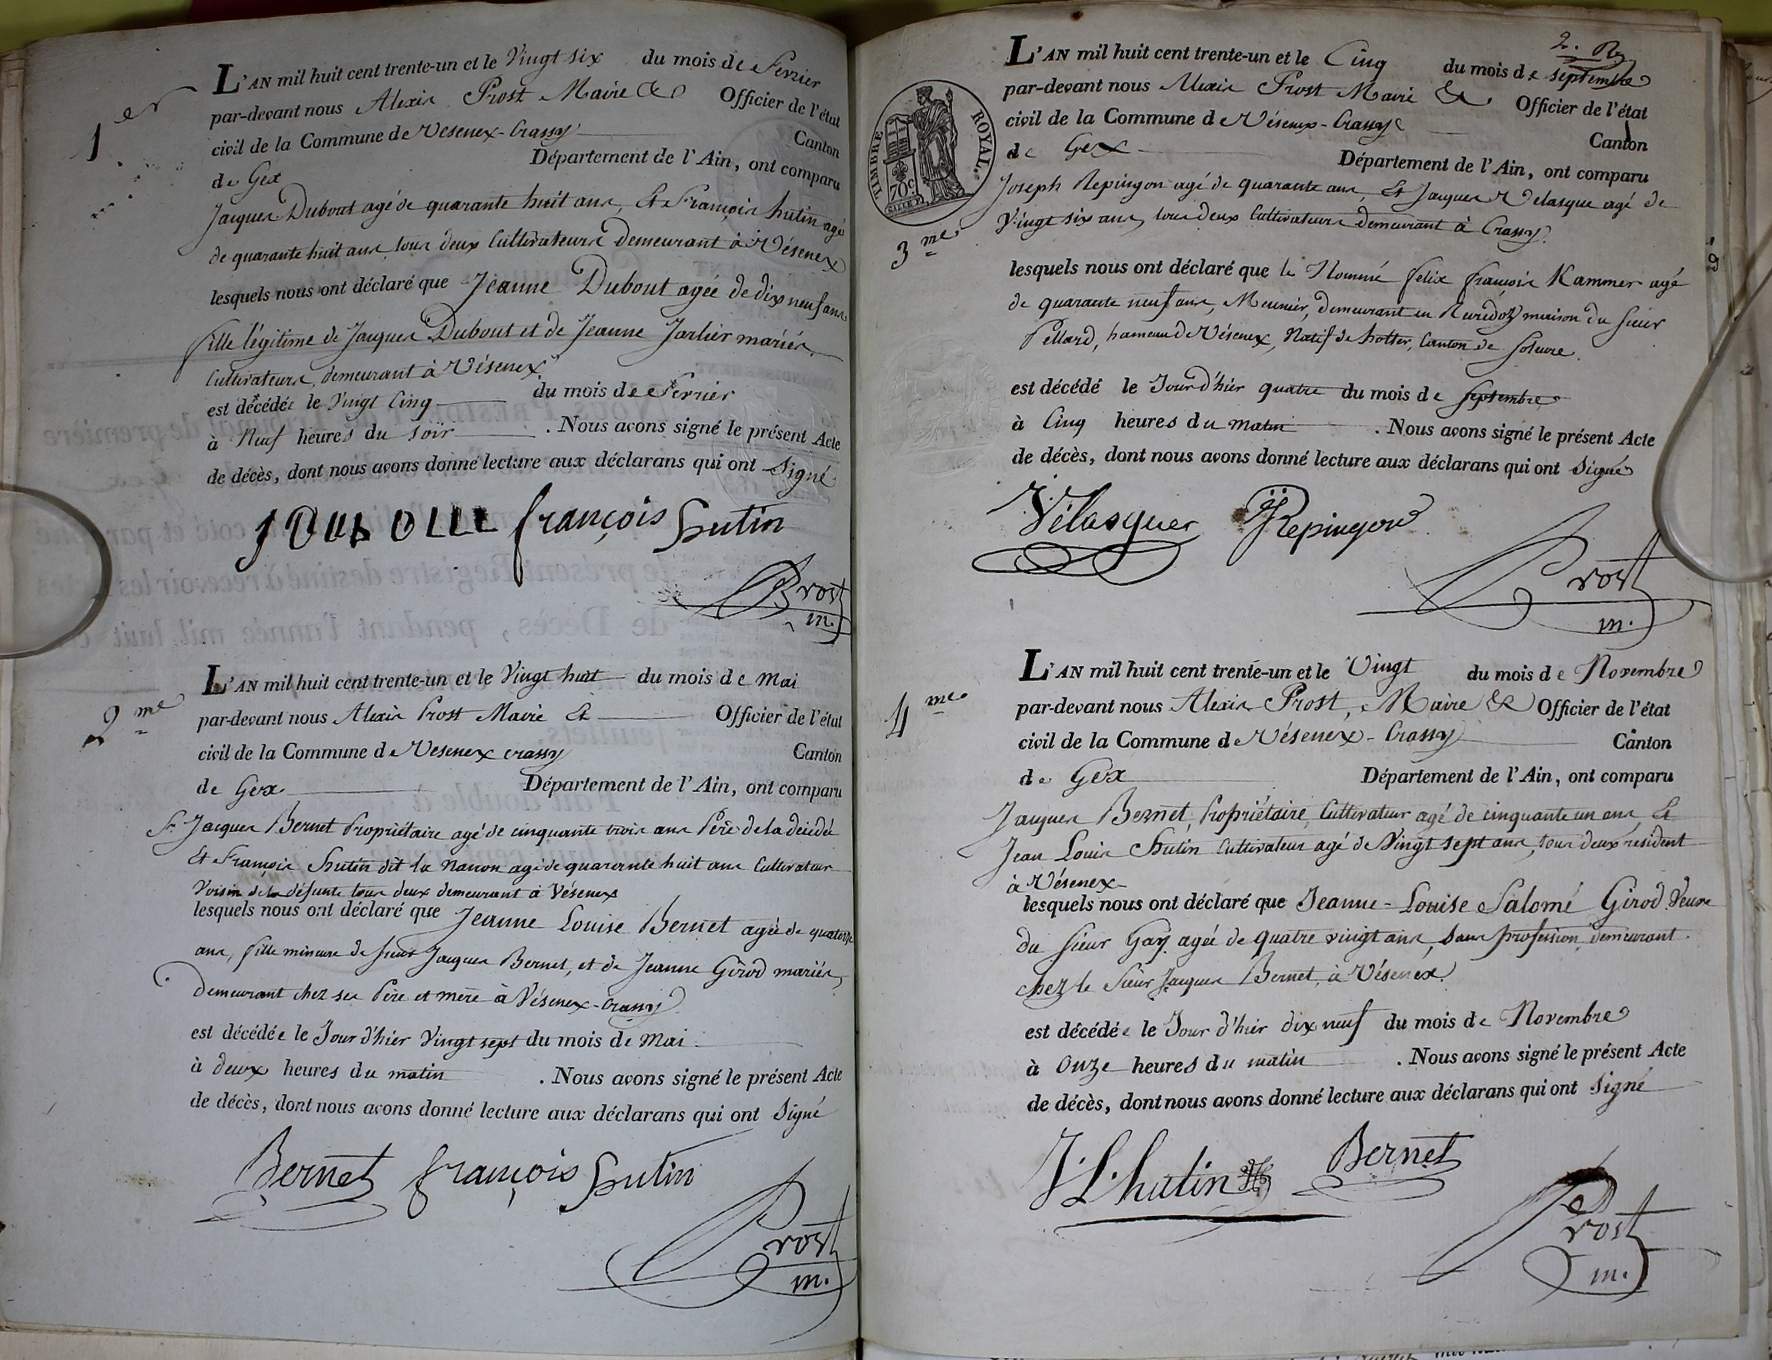 1er
L'AN mil huit cent trente-un et le Vingt six du mois de Fevrier
par-devant nous Alexis Prost Maire & Officier de l'état
civil de la Commune de Vesenex-Crassy Canton
de Gex Département de l'Ain, ont comparu
Jacques Dubout agé de quarante huit ans, Et François hutin agé
de quarante huit ans, tous deux Cultivateurs demeurant à Vésenex
lesquels nous ont déclaré que Jeanne Dubout agée de dix neuf ans
fille légitime de Jacques Dubout et de Jeanne Jarlier mariés,
Cultivateurs, demeurant à Vésenex
est décédée le Vingt Cinq du mois de Fevrier
à Neuf heures du soir . Nous avons signé le présent Acte
de décès, dont nous avons donné lecture aux déclarans qui ont Signé
françois hutin
Prost
m.
2me
L'AN mil huit cent trente-un et le Vingt huit du mois de Mai
par-devant nous Alexis Prost Maire Et Officier de l'état
civil de la Commune de Vesenex crassy Canton
de Gex Département de l'Ain, ont comparu
Sr Jacques Bernet Propriétaire agé de cinquante trois ans Père de la décédé
Et François hutin dit la Nanon agé de quarante huit ans Cultivateur
Voisin de la défunte tous deux demeurant à Vésenex
lesquels nous ont déclaré que Jeanne Louise Bernet agée de quatorze
ans, fille mineure de Sieur Jacques Bernet, et de Jeanne Girod mariés,
Demeurant chez ses Père et mère à Vésenex-Crassy
est décédée le Jour d'hier Vingt sept du mois de Mai
à deux heures du matin . Nous avons signé le présent Acte
de décès, dont nous avons donné lecture aux déclarans qui ont Signé
Bernet françois hutin
Prost
m.
2.
TIMBRE ROYAL
70c
3me
L'AN mil huit cent trente-un et le Cinq du mois de septembre
par-devant nous Alexis Prost Maire & Officier de l'état
civil de la Commune de Vésenex-Crassy Canton
de Gex Département de l'Ain, ont comparu
Joseph Repingon agé de quarante ans, Et Jacques Velasque agé de
Vingt six ans, tous deux Cultivateurs demeurant à Crassy.
lesquels nous ont déclaré que le Nommé felix françois Kammer agé
de quarante neuf ans, Meunier, demeurant en maison du Sieur
Pellard, hameau de Vésenex, Natif de holten, Canton de Soleure.
est décédé le Jour d'hier quatre du mois de Septembre
à Cinq heures du matin . Nous avons signé le présent Acte
de décès, dont nous avons donné lecture aux déclarans qui ont Signé
Vélasquer JRepingon
Prost
m.
4me
L'AN mil huit cent trente-un et le Vingt du mois de Novembre
par-devant nous Alexis Prost, Maire & Officier de l'état
civil de la Commune de Vésenex-Crassy Canton
de Gex Département de l'Ain, ont comparu
Jacques Bernet, Propriétaire, Cultivateur agé de cinquante un ans, Et
Jean Louis hutin Cultivateur agé de Vingt sept ans, tous deux résident
à Vésenex
lesquels nous ont déclaré que Jeanne-Louise Salomé Girod Veuve
du Sieur Gay. agée de quatre vingt ans, Sans profession, demeurant
chez le Sieur Jacques Bernet, à Vésenex.
est décédée le Jour d'hier dix neuf du mois de Novembre
à Onze heures du matin . Nous avons signé le présent Acte
de décès, dont nous avons donné lecture aux déclarans qui ont Signé
J.L. hutin Bernet
Prost
m.